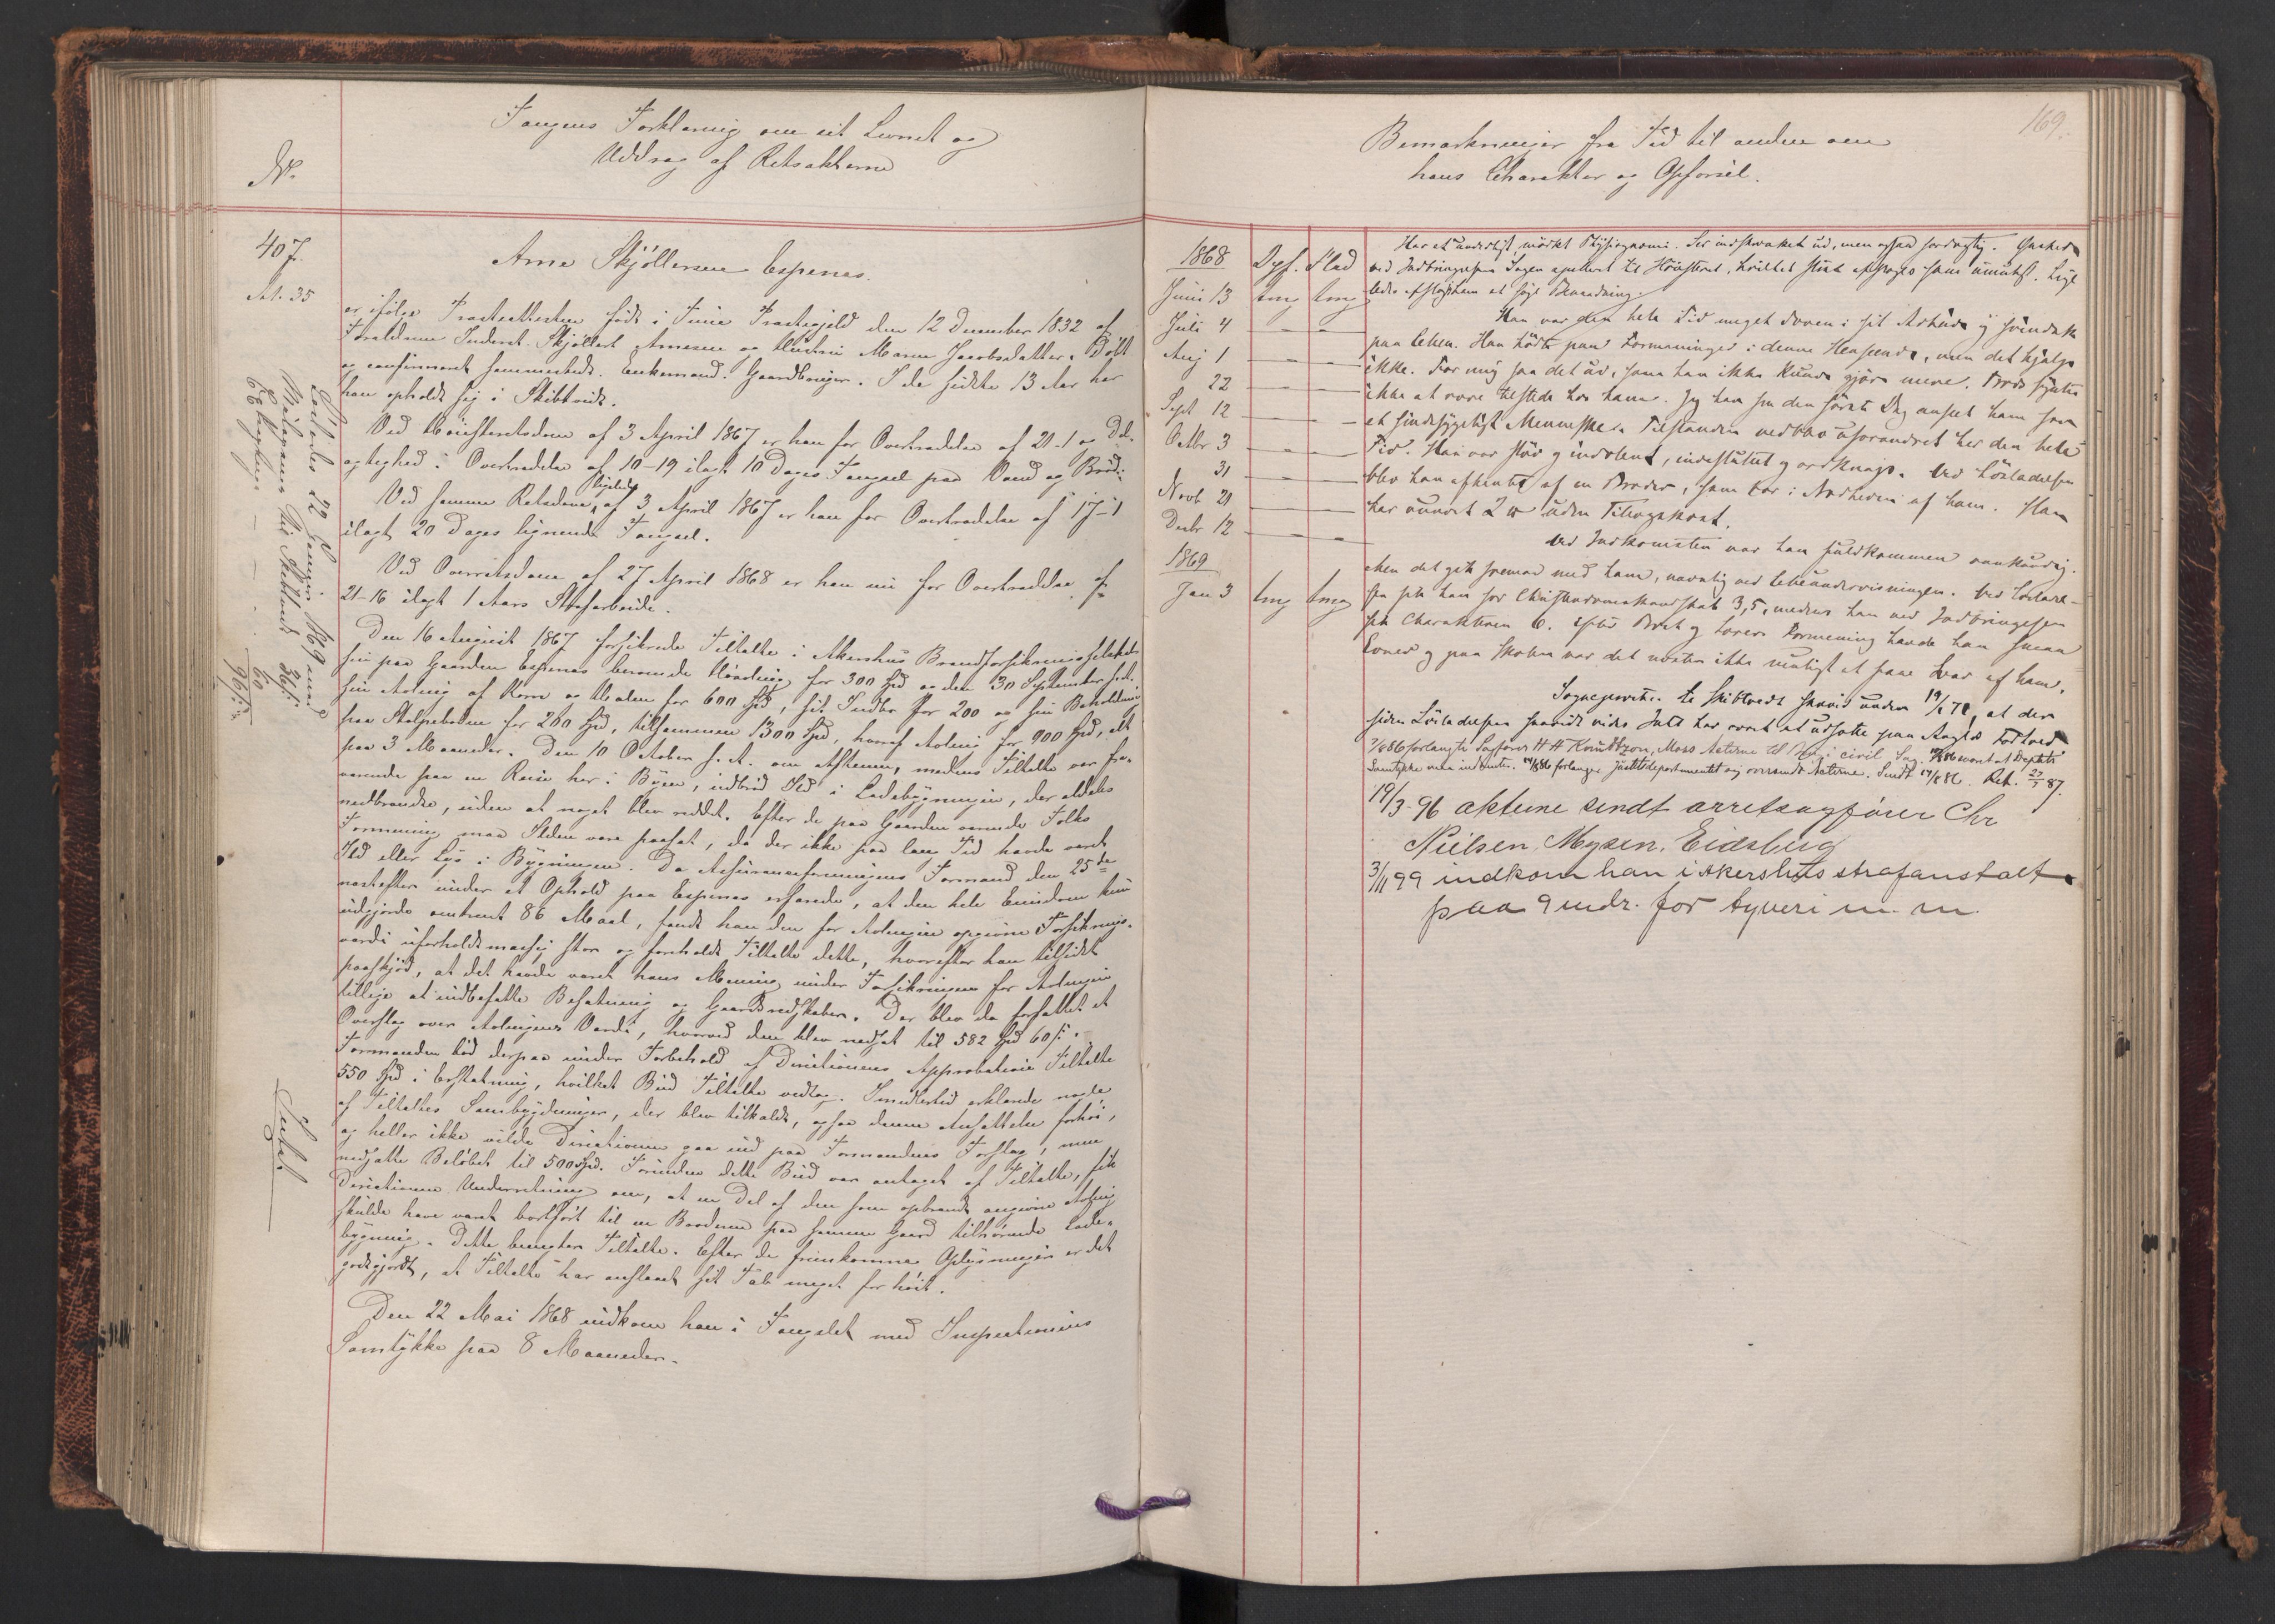 Fangens Forklaring om sit Levnet og
Uddrag af Retsakterne
№
407.
Al. 35
Arne Skjöllersen Espenes.
er ifölge Præsteattesten födt i Tune Præstegjeld den 12 December 1832 af
Forældrene Inderst Skjöllert Arnesen og Hustru Maren Jacobsdatter. Döbt
og confirmeret sammesteds. Enkemand. Gaardbruger. I de sidste 13 Aar har
han opholdt sig i Skibtvedt.
Ved Höiesteretsdom af 3 April 1867 er han for Overtrædelse af 21-1 og Del-
agtighed i Overtrædelse af 10-19 ilagt 10 Dages Fængsel paa Vand og Bröd.
Ved samme Retsdom, ligeledes af 3 April 1867 er han for Overtrædelse af 17-1
ilagt 20 Dages lignende Fængsel.
Ved Overretsdom af 27 April 1868 er han nu for Overtrædelse af
21-16 ilagt 1 Aars Strafarbeide.
Den 16 August 1867 forsikrede Tiltalte i Akershus Brandforsikringsselskab
sin paa Gaarden Espenes beroende Höavling for 300 Spd og den 30 September s. A.
sin Avling af Korn og Halm for 600 Spd, sit Indbo for 200 og sin Beholdning
paa Stolpeboden for 200 Spd, tilsammen 1300 Spd, hvoraf Avling for 900 Spd, alt
paa 3 Maaneder. Den 10 October s. A. om Aftenen, medens Tiltalte var fra-
værende paa en Reise her i Byen, udbröd Ild i Ladebygningen, der aldeles
nedbrændte, uden at noget blev reddet. Efter de paa Gaarden værende Folks
Formening maa Ilden være paasat, da der ikke paa lang Tid havde været
Ild eller Lys i Bygningen. Da Assuranceforeningens Formand den 25de
næstefter under et Ophold paa Espenes erfarede, at den hele Eiendom kun
udgjorde omtrent 86 Maal, fandt han den for Avlingen opgivne Forsikrings-
værdi uforholdsmæssig stor og foreholdt Tiltalte dette, hvorefter han tilsidst
paaskjöd, at det havde været hans Mening under Forsikringen for Avlingen
tillige at indbefatte Besætning og Gaardsredskaber. Der blev da forfattet et
Overslag over Avlingens Værdi, hvorved den blev nedsat til 582 Spd 60 ß.
Formanden böd derpaa under Forbehold af Directionens Approbation Tiltalte
550 Spd i Erstatning, hvilket Bud Tiltalte vedtog. Imidlertid erklærede nogle
af Tiltaltes Sambygdinger, der blev tilkaldt, ogsaa denne Ansættelse forhöi,
og heller ikke vilde Directionen gaa ind paa Formandens Forslag, men
nedsatte Belöbet til 500 Spd. Forinden dette Bud var antaget af Tiltalte, fik
Directionen Underretning om, at en Del af den som opbrændt angivne Avling
skulde have været bortfört til en Broderen paa samme Gaard tilhörende Lade-
bygning. Dette benegter Tiltalte. Efter de fremkomne Oplysninger er det
godtgjordt, at Tiltalte har ansat sit Tab meget for höit.
Den 22 Mai 1868 indkom han i Fængslet med Inspectionens
Samtykke paa 8 Maaneder.
Löslades 22 Januar 1869 med
Reisepenge til Skibtvedt 36 ß
60
96 ß
169.
Bemærkninger fra Tid til anden om
hans Charakter og Opförsel.
1868 Opf. Flid
Juni 13 tmg tmg
Juli 4 — —
Aug 1 — —
22 — —
Sept 12 — —
Octbr 3 — —
31 — —
Novb 21 — —
Decbr 12 — —
1869
Jan 3 tmg tmg
Har et underligt mörkt Physiognomi. Ser indskrænket ud, men ogsaa fordægtig. Önskede
ved Indbringelsen Sagen appelleret til Höiesteret, hvilket strax afsloges som unyttigt. Lige
ledes afslog han at söge Benaadning.
Han var den hele Tid meget doven i sit Arbeide og svindsk
paa Cellen. Han lödte paa Formaninger i denne Henseende, men det hjalp
ikke. For mig saa det ud, som han ikke kunde gjöre mere. Trods syntes
ikke at være tilstede hos ham. Jeg har fra den förste Dag anseet ham som
et sindssygeligt Menneske. Tilstanden vedblev uforandret her den hele
Tid. Han var slöv og indolent, indesluttet og ordknap. Ved Lösladelsen
blev han afhentet af en Broder, som bor i Nærheden af ham. Han
har vundet 2 ℔ uden Tillægskost.
Ved Indkomsten var han fuldkommen vankundig.
Men det gik fremad med ham, navnlig ved Celleundervisningen. Ved Löslad-
sen fik han for Christendomskundskab 3,5, medens han ved Indbringelsen
fik Charakteren 6. Efter Præst og Lærers Formening havde han smaa
Evner og paa Skolen var det næsten ikke muligt at faae Svar af ham.
Sognepræsten til Skibtvedt skrev under 19/1 71, at der
siden Lösladelsen saavidt vides Intet har været at udsætte paa Aagts Forhold
7/8 86 forlangte Sagförer H H Knudtzon, Moss Acterne til Brug i civil Sag. 10/8 86 svaret at Deptets
Samtykke maa indhentes. 14/8 86 forlanger Justitsdepartementet sig oversendt Acterne. Sendt 17/8 86. Ret. 27/5 87.
19/3-96 akterne sendt overretssagförer Chr
Nielsen, Mysen, Eidsberg
3/11 99 indkom han i Akershus strafanstalt
paa 9 mdr. for tyveri m. m.